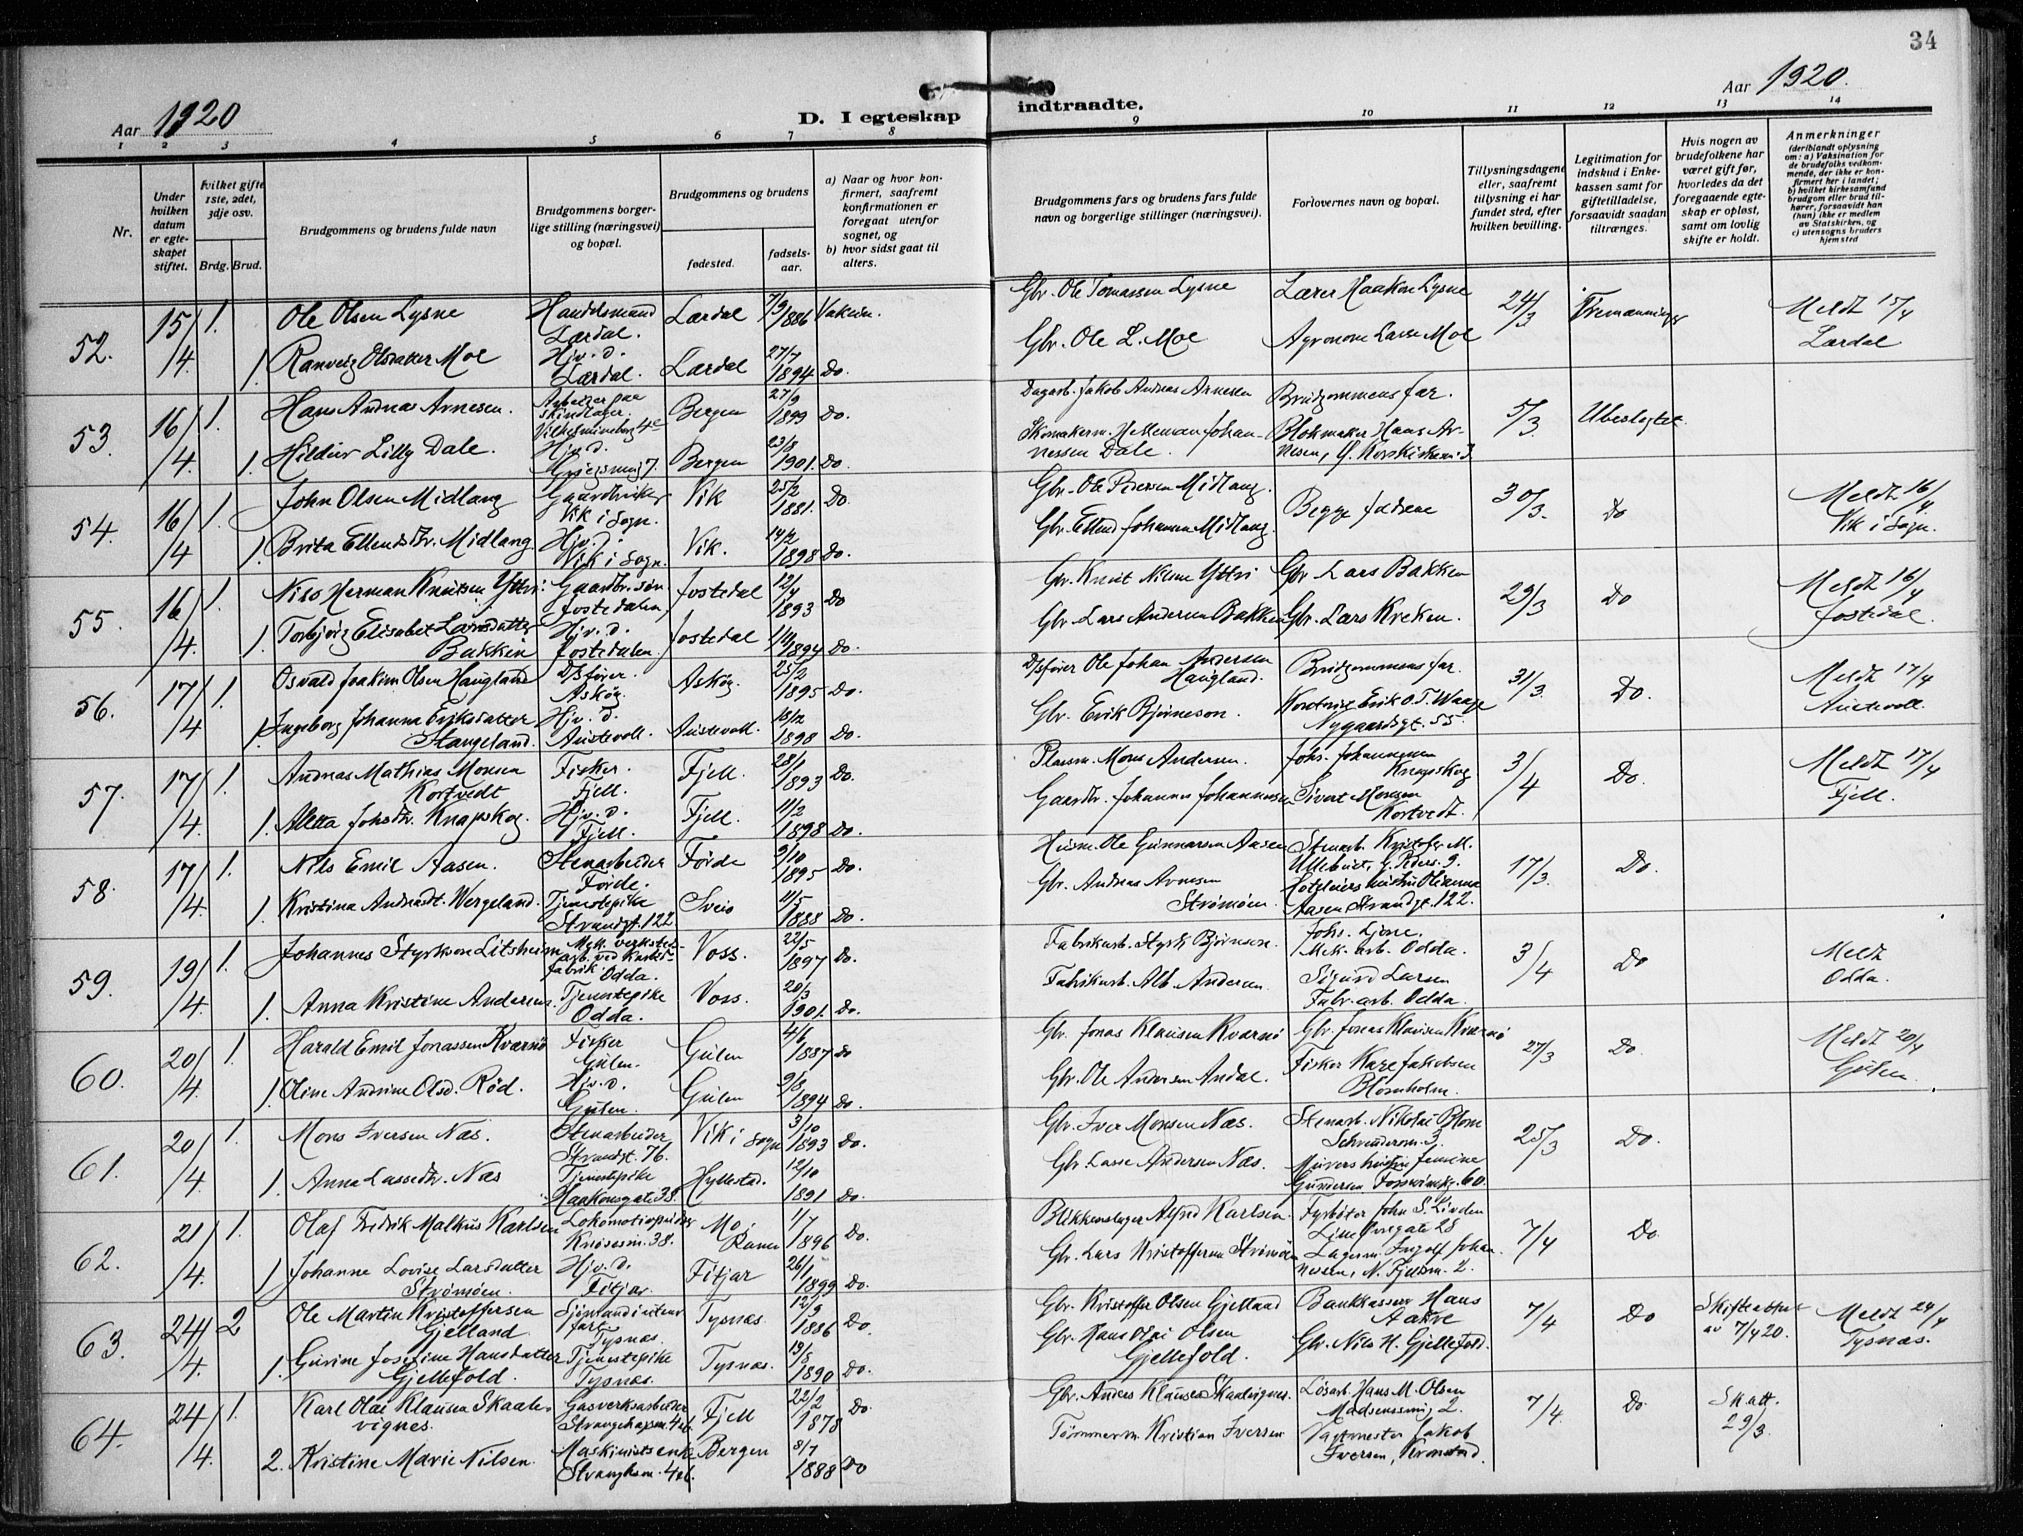 34
Aar 1920
D. I egteskap indtraadte.
Aar 1920.
1 2 3 4 5 6 7 8 9 10 11 12 13 14
Nr.
Under hvilken datum er egteskapet stiftet.
Hvilket gifte 1ste, 2det, 3dje osv.
Brdg. Brud.
Brudgommens og brudens fulde navn
Brudgommens borgerlige stilling (næringsvei) og bopæl.
Brudgommens og brudens
fødested.
fødselsaar.
a) Naar og hvor konfirmert, saafremt konfirmationen er foregaat utenfor sognet, og
b) hvor sidst gaat til alters.
Brudgommens fars og brudens fars fulde navn og borgerlige stillinger (næringsvei).
Forlovernes navn og bopæl.
Tillysningsdagene eller, saafremt tillysning ei har fundet sted, efter hvilken bevilling.
Legitimation for indskud i Enkekassen samt for giftetilladelse, forsaavidt saadan tiltrænges.
Hvis nogen av brudefolkene har været gift før, hvorledes da det foregaaende egteskap er opløst, samt om lovlig skifte er holdt.
Anmerkninger (deriblandt oplysning om: a) Vaksination for de brudefolks vedkommende, der ikke er konfirmert her i landet; b) hvilket kirkesamfund brudgom eller brud tilhører, forsaavidt han (hun) ikke er medlem av Statskirken, og c) utensogns bruders hjemsted
52. 15/4 1. Ole Olsen Lysne Handelsmand Lærdal. Lærdal 7/9 1886 Gbr. Ole Tomassen Lysne Lærer Haakon Lysne 24/3 Tremænninger Meldt 15/4 Lærdal
1. Ranveig Olsdatter Moe Hjv. d. Lærdal. Lærdal 27/7 1894 Do. Gbr. Ole L. Moe Agronom Lasse Moe
53. 16/4 1. Hans Andreas Arnesen. Arbeider paa skindlager. Bergen 27/9 1899 Do. Dagarb. Jakob Andreas Arnesen Brudgommens far. 5/3 Ubeslegtet.
1. Hildur Lilly Dale. Hjv. d. Bergen 1901. Do. Skomakerm. Johannessen Dale. Blokmaker Hans Arnesen,
54. 16/4 1. John Olsen Midlang Gaardbruker Vik i Sogn. Vik 25/2 1881. Do. Gbr. Ole Pedersen Midlang. Begge fædrene 30/3. Do Meldt 16/4 Vik i Sogn.
1. Brita Ellendsdtr. Midlang Hjv. d. Vik i Sogn. Vik. 14/2 1898 Do. Gbr. Ellend Johannes Midlang.
55. 16/4 1. Nils Herman Knutsen Yttri Gaardbr. søn Jostedalen. Jostedal 12/4 1893 Do Gbr. Knut Nilsen Yttri Gbr. Lars Bakken 29/3 Do Meldt 16/4 Jostedal.
1. Torbjørg Elisabet Larsdatter Bakken Hjv. d. Jostedalen. Jostedal 1894 Do. Gbr. Lars Andersen Bakken Gbr. Lars Kreken.
56. 17/4 1. Osvald Joakim Olsen Haugland D/sfører. Askøy. Askøy. 25/2 1895 Do. D/sfører Ole Johan Andersen Haugland. Brudgommens far. 31/3. Do. Meldt 17/4 Austevoll.
1. Ingeborg Johanna Eriksdatter Stangeland. Hjv. d. Austevoll. Austevoll. 1898 Do. Gbr. Erik Bjørneson. Erik O. T. Waage Nygaardsgt. 55
57. 17/4 1. Andreas Mathias Monsen Kortvedt Fisker. Fjell. Fjell. 28/1 1893 Do. Plassm. Mons Andersen. Johs. Johannessen Knapskog 3/4 Do. Meldt 17/4 Fjell.
1. Aletta Johsdtr. Knapskog. Hjv. d. Fjell. Fjell. 11/2 1898 Do. Gaardbr. Johannes Johannessen Sivert Monsen Kortvedt.
58. 17/4 1. Nils Emil Aasen. Stenarbeider Førde. Førde 9/10 1895 Do. Husm. Ole Gunnarsen Aasen Stenarb. Kristofer M. 17/3. Do.
1. Kristina Andreasdt. Wergeland. Tjenestepike Strandgt. 122. Sveio 11/5 1888 Do. Gbr. Andreas Arnesen Strømøen. Aasen Strandgt. 122.
59. 19/4 1. Johannes Styrkson Litsheim Mek. verksted arb. ved Karbidfabrik Odda. Voss. 22/5 1897 Do. Fabrikarb. Styrk Bjørnson. Johs. Ljone. Mek. arb. Odda. 3/4 Do Meldt Odda.
1. Anna Kristine Andersen Tjenestepike Odda. Voss. 20/3 1901. Do. Fabrikarb. Alb. Andersen Sigurd Larsen Fabr. arb. Odda.
60. 20/4 1. Harald Emil Jonassen Kværnø Fisker Gulen Gulen 4/6 1887 Do Gbr. Jonas Klausen Kværnø Gbr. Jonas Klausen Kværnø 27/3 Do. Meldt 20/4 Gulen
1. Oline Andrine Olsd. Rød. Hjv. d. Gulen. Gulen 1894 Do. Gbr. Ole Andersen Andal. Fisker Kare Jakobsen Blomholm.
61. 20/4 1. Mons Iversen Næs. Stenarbeider Strandgt. 76. Vik i Sogn 3/10 1893 Do. Gbr. Iver Monsen Næs. Stenarb. Nikolai Blom 25/3 Do.
1. Anna Lassedtr. Næs Tjenestepike Haakonsgate 38. Hyllestad. 12/10 1891 Do. Gbr. Lasse Andersen Næs. Murers hustru Jensine Gundersen
62. 21/4 1. Olaf Fredrik Malkus Karlsen Knøsesm. 38. Mo i Ranen 1/7 1896 Do. Blikkenslager Alfred Karlsen. Fyrbøter John S. Linden 7/4 Do.
1. Johanne Lovise Larsdatter Strømøen. Hjv. d. Fitjar Fitjar 26/1 1899 Do. Gbr. Lars Kristoffersen Strømøen Lagerm. Ingolf Johannessen, N. Fjeldsm. 2.
63. 24/4 2 Ole Martin Kristoffersen Gjelland. Sjømand i utenrfart Tysnæs. Tysnæs 12/9 1886 Do. Gbr. Kristoffer Olsen Gjelland Bankkasserer Hans Aakre 7/4 Do Skifteattest av 7/4 20. Meldt 24/4 Tysnæs.
1. Gurine Josefine Hansdatter Gjellefold. Tjenestepike Tysnæs. Tysnæs. 19/8 1890 Do. Gbr. Hans Olai Olsen Gjellefold. Gbr. Nils H. Gjellefold.
64. 24/4 1. Karl Olai Klausen Skaalevignes. Gasverksarbeider Fjell 22/2 1878 Do. Gbr. Anders Klausen Skaalevignes. Løsarb. Hans M. Olsen Madsensmug 2. 7/4. Do. Sk. att. 29/3.
2. Kristine Marie Nilsen. Maskinists enke Bergen 8/7 1888 Do Tømmerm. Kristian Iversen Vagtmester Jakob Iversen, Kronstad.